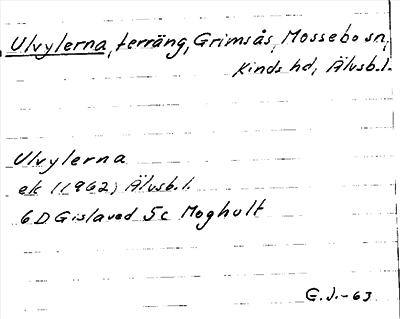 Ulvylerna, terräng, Grimsås, Mossebo sn,
Kinds hd, Älvsb.l.
Ulvylerna
ek (1962) Älvsb.l.
6D Gislaved 5c Moghult
G.J.-63